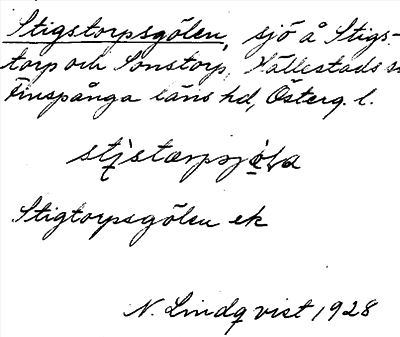 Stigstorpsgölen, sjö å Stigs-
torp och Sonstorp, Hällestads sn
Finspånga läns hd, Österg. l.
Stigtorpsgölen ek
N. Lindqvist 1928